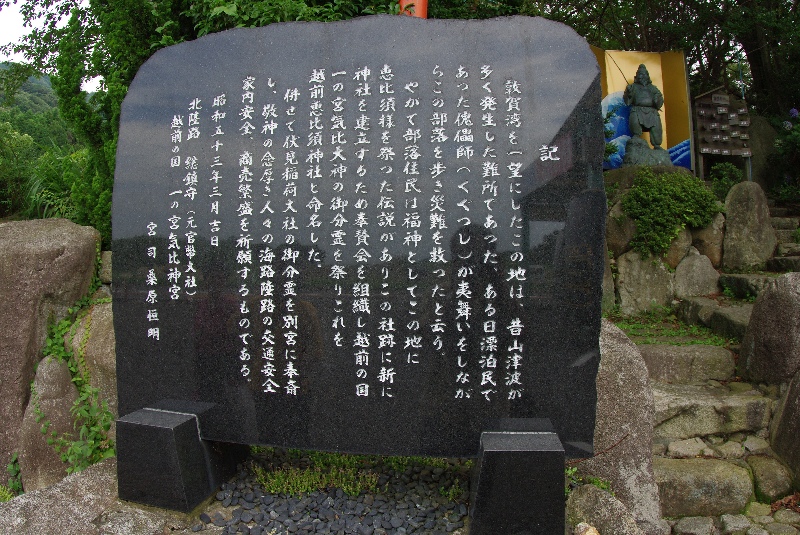 記
敦賀湾を一望にしたこの地は、昔山津波が
多く発生した難所であった。ある日漂泊民で
あった傀儡師(くぐつし)が夷舞いをしなが
らこの部落を歩き災難を救ったと云う。
やがて部落住民は福神としてこの地に
恵比須様を祭った伝説がありこの社跡に新に
神社を建立するため奉賛会を組織し越前の国
一の宮気比大神の御分霊を祭りこれを
越前恵比須神社と命名した。
併せて伏見稲荷大社の御分霊を別宮に奉斎
し、敬神の念厚き人々の海路陸路の交通安全
家内安全、商売繁盛を祈願するものである。
昭和五十三年三月吉日
北陸路 総鎮守(元官幣大社)
越前の国 一の宮気比神宮
宮司 桑原恒明